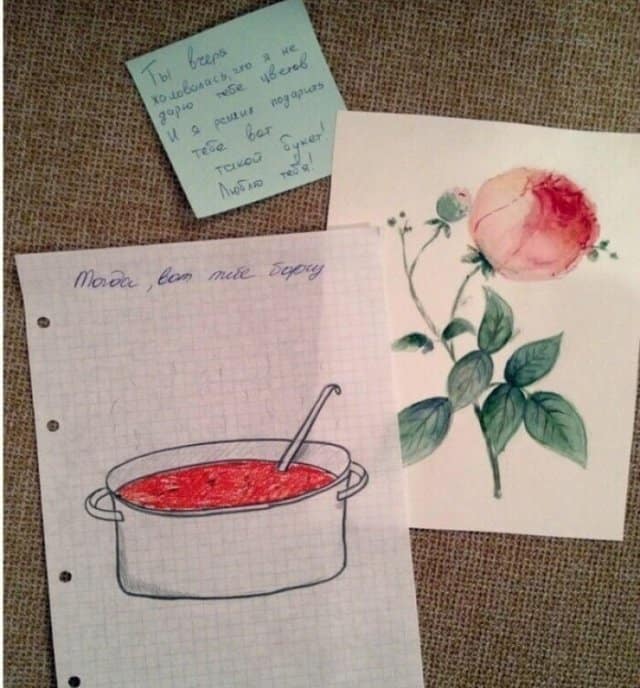 Ты вчера
жаловалась, что я не
дарю тебе цветов
И я решил подарить
тебе вот
такой букет!
Люблю тебя!
Тогда, вот тебе борщ